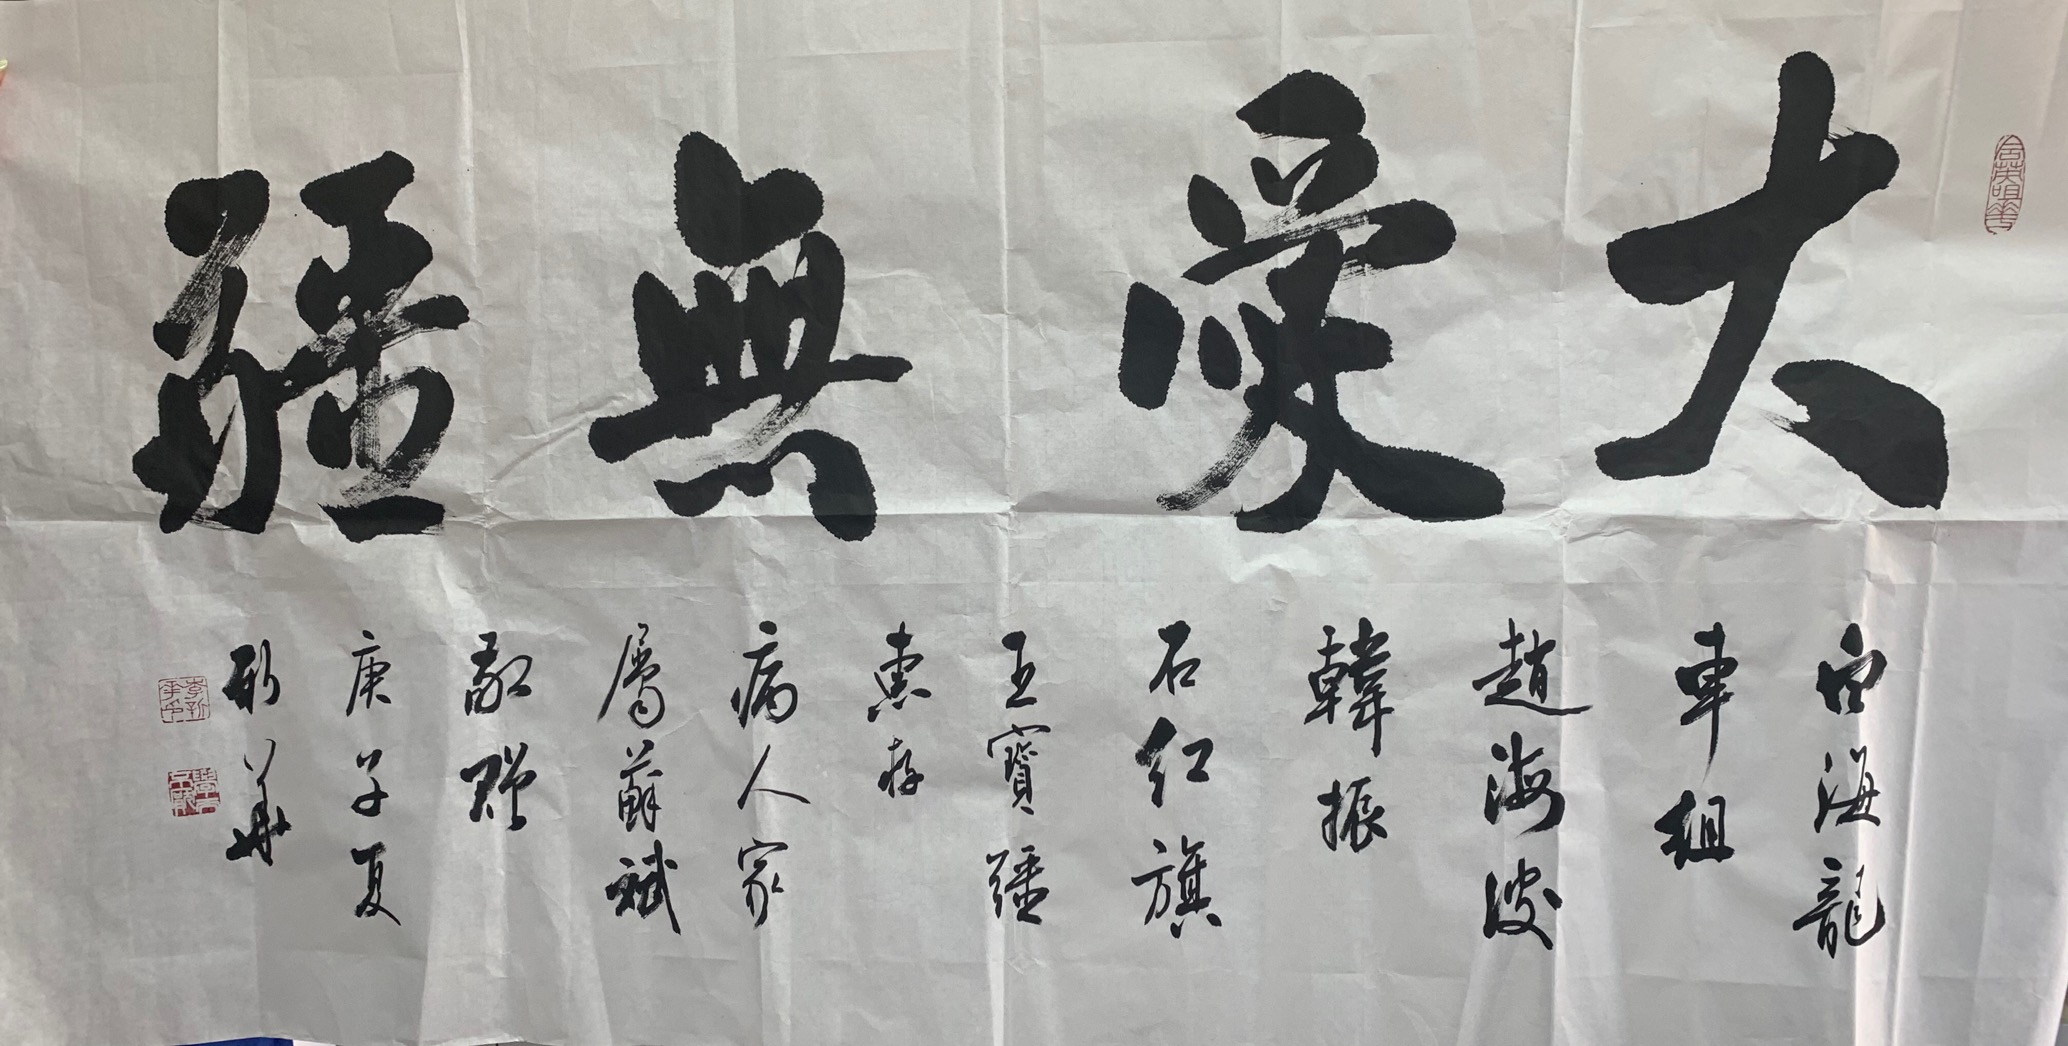 大愛無疆
白海龍
車組
趙海波
韓振
石红旗
王寶疆
惠存
病人家
屬蘇斌
敬贈
庚子夏
新华